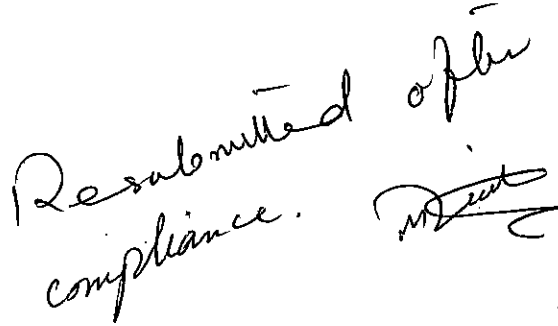 Resubmitted after
compliance.